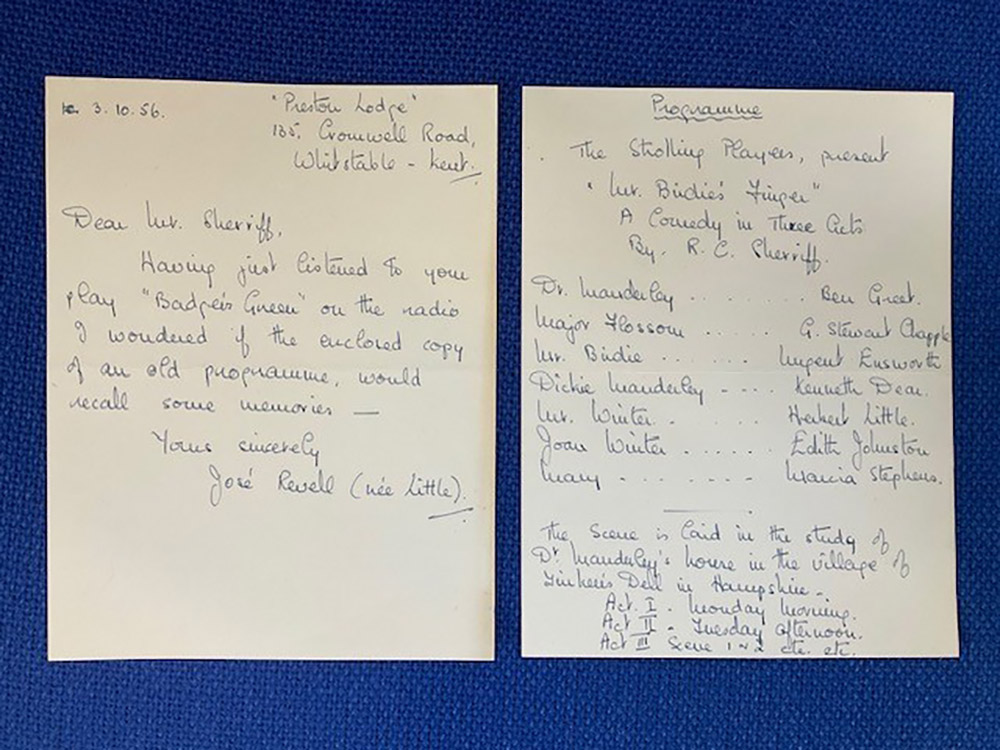 3.10.56.
"Preston Lodge"
135, Cromwell Road,
Whitstable - Kent.
Dear Mr. Sherriff,
Having just listened to your
play "Badger's Green" on the radio
I wondered if the enclosed copy
of an old programme, would
recall some memories —
Yours sincerely
José Revell (née Little).
Programme
The Strolling Players, present
"Mr. Birdie's Finger"
A Comedy in Three Acts
By. R. C. Sherriff.
Dr. Manderley . . . . . . . . Ben Greet.
Major Flossom . . . . . G. Stewart Chapple
Mr. Birdie . . . . . . . Ensworth
Dickie Manderley - . . . Kenneth Dear.
Mr. Winter. . . . . Herbert Little.
Joan Winter . . . . . . Edith Johnston
Mary . . . . . . . Marcia Stephens.
The Scene is laid in the study of
Dr. Manderley's house in the village of
Tinker's Dell in Hampshire.
Act. I - Monday Morning.
Act II - Tuesday afternoon.
Act III Scene 1 & 2 etc. etc.